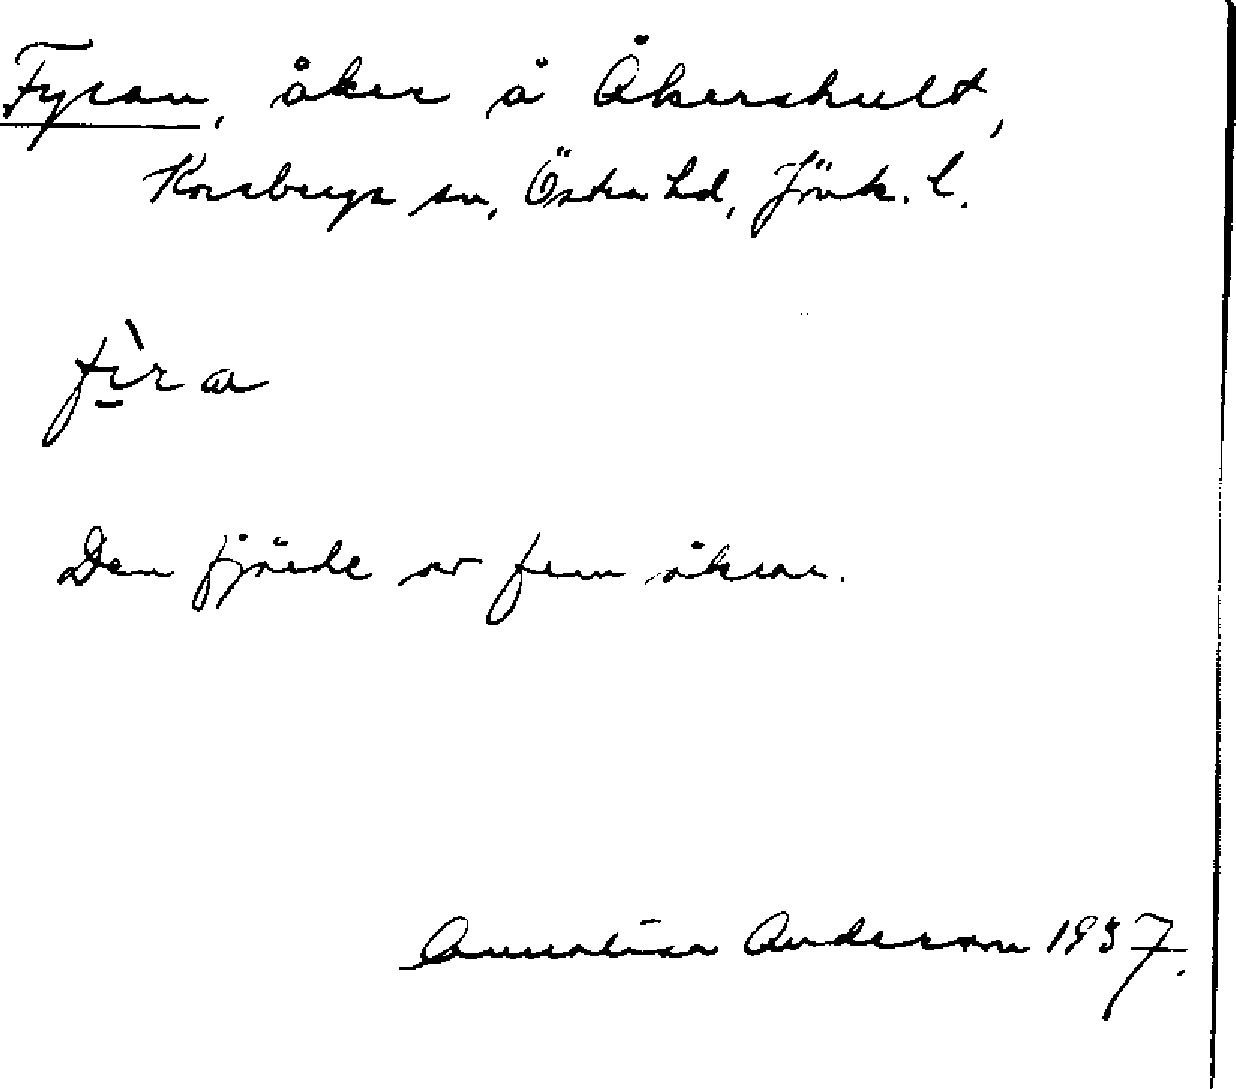 Fyran, åker å Åkershult,
Korsberga sn, Östra hd, Jönk. l.
fìra
Den fjärde av fem åkrar.
Annalisa Anderson 1937.